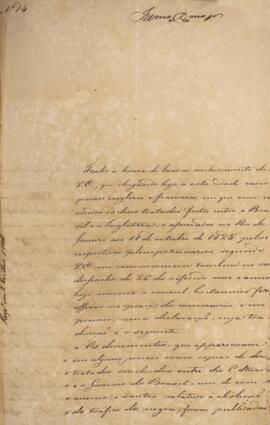 Nº 14
Illmo. e Exmo. Snr.
Tenho a honra de levar ao conhecimento de
V.E., que chegando hoje a esta cidade varios
jornaes inglezes e francezes em que vem
os dous tratados feitos entre o Bra
sil e Inglaterra, e assinados no Rio de
Janeiro aos 18 de outubro de 1825 pelos
respectivos plenipotenciarios, segundo
V.E. me communicou tambem no seu
despacho de 26 do referido mez e anno
hoje mesmo o consul britannico fez
affixar na praça do commercio, um
impresso uma declaração, cuja tra
dução é a seguinte.
"Os documentos, que appareceram
em alguns jornaes como copias de dous
tratados concluidos entre
e o Governo do Brasil, um de com
mercio, e outro relativo a abolição
do trafico dos negros, foram publicados